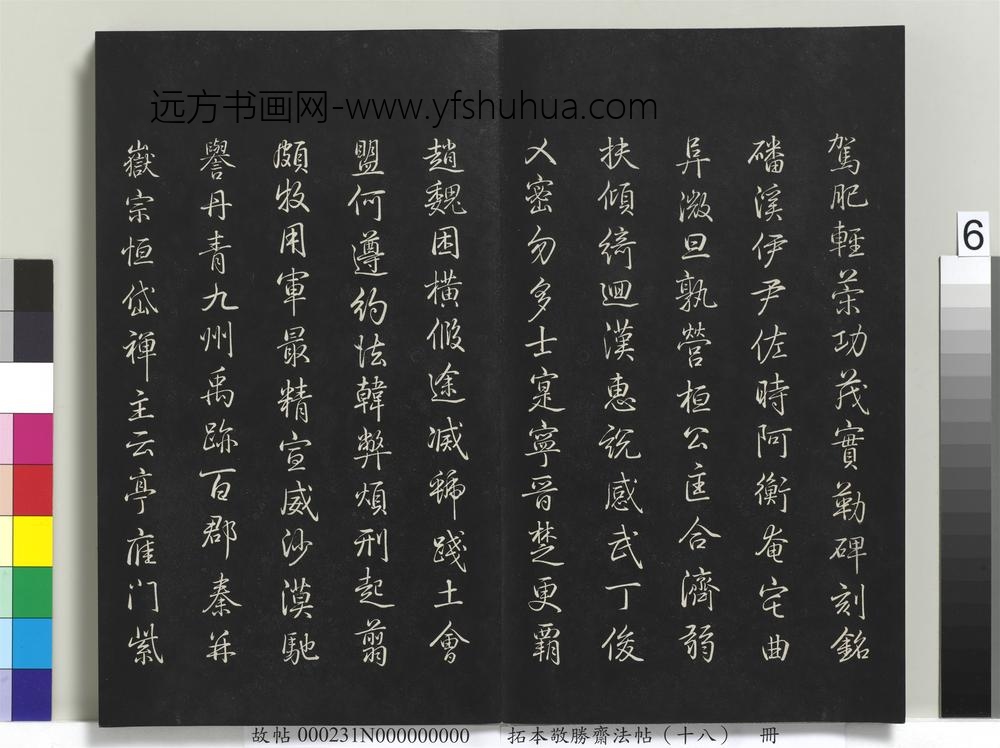 远方书画网-www.yfshuhua.com
駕肥輕策功茂實勒碑刻銘
磻溪伊尹佐時阿衡奄宅曲
阜微旦孰營桓公匡合濟弱
扶傾綺迴漢惠說感武丁俊
乂密勿多士寔寧晉楚更霸
趙魏困橫假途滅虢踐土會
盟何遵約法韓弊煩刑起翦
頗牧用軍最精宣威沙漠馳
譽丹青九州禹跡百郡秦并
嶽宗恒岱禪主云亭雁门紫
6
故帖 000231N000000000 拓本敬勝齋法帖（十八） 冊